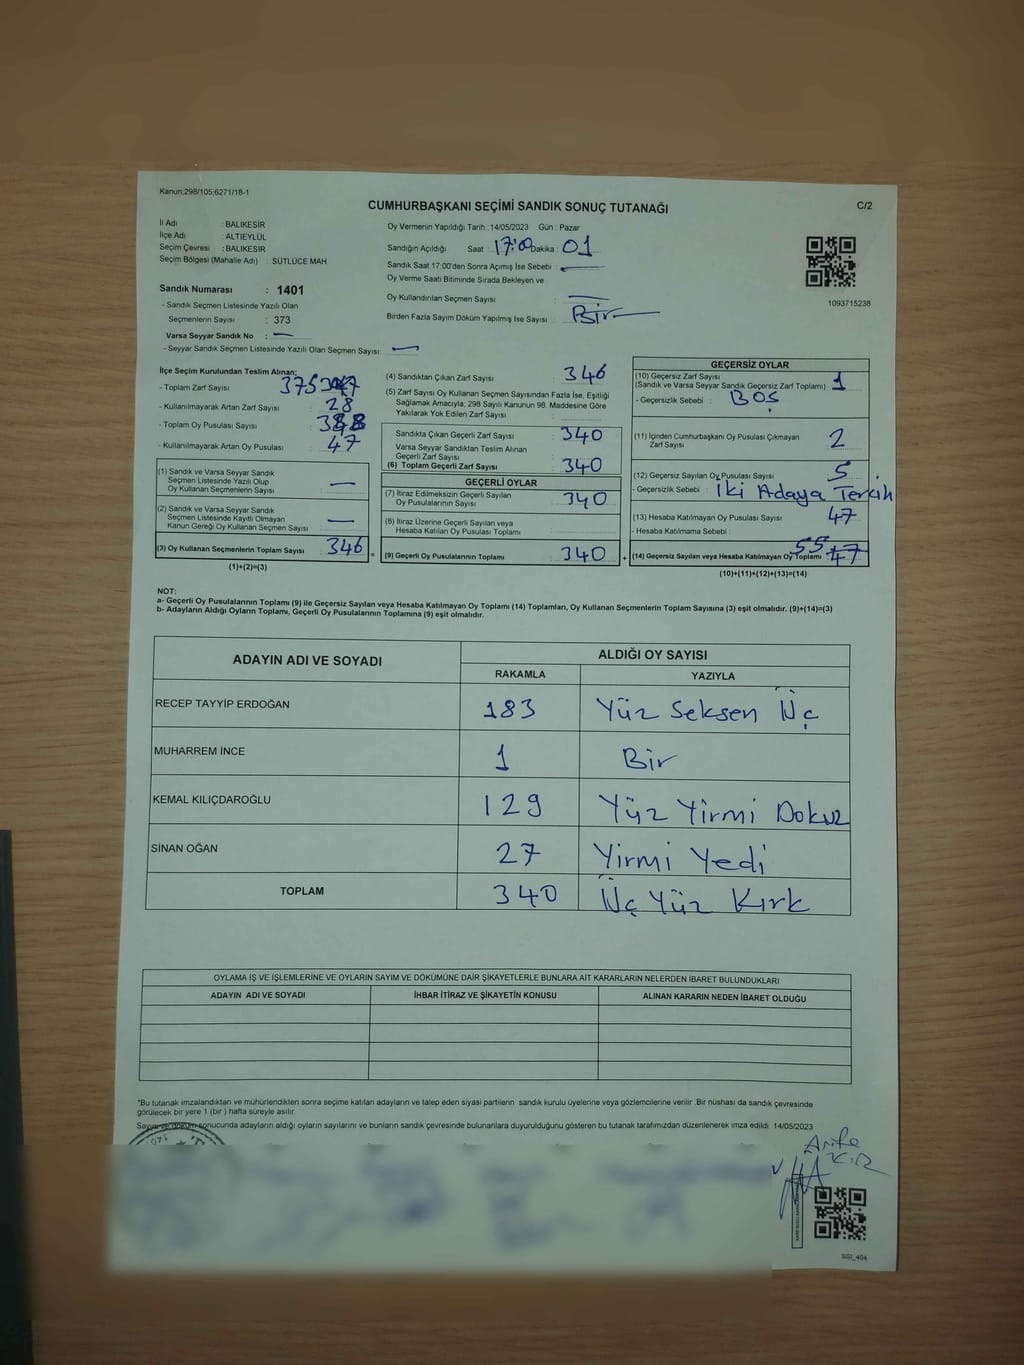 Kanun;298/105;6271/18-1
CUMHURBAŞKANI SEÇİMİ SANDIK SONUÇ TUTANAĞI
C/2
İl Adı : BALIKESİR
İlçe Adı : ALTIEYLÜL
Seçim Çevresi : BALIKESİR
Seçim Bölgesi (Mahalle Adı) : SÜTLÜCE MAH.
Sandık Numarası : 1401
- Sandık Seçmen Listesinde Yazılı Olan
Seçmenlerin Sayısı : 373
Varsa Seyyar Sandık No : —
- Seyyar Sandık Seçmen Listesinde Yazılı Olan Seçmen Sayısı: —
Oy Vermenin Yapıldığı Tarih : 14/05/2023 Gün : Pazar
Sandığın Açıldığı Saat : 17:00 Dakika : 01
Sandık Saat 17.00'den Sonra Açımış İse Sebebi : —
Oy Verme Saati Bitiminde Sırada Bekleyen ve
Oy Kullandırılan Seçmen Sayısı : —
Birden Fazla Sayım Döküm Yapılmış İse Sayısı : Bir
1093715238
İlçe Seçim Kurulundan Teslim Alınan;
- Toplam Zarf Sayısı : 375
- Kullanılmayarak Artan Zarf Sayısı : 28
- Toplam Oy Pusulası Sayısı :
- Kullanılmayarak Artan Oy Pusulası : 47
(1) Sandık ve Varsa Seyyar Sandık
Seçmen Listesinde Yazılı Olup
Oy Kullanan Seçmenlerin Sayısı : —
(2) Sandık ve Varsa Seyyar Sandık
Seçmen Listesinde Kayıtlı Olmayan
Kanun Gereği Oy Kullanan Seçmen Sayısı : —
(3) Oy Kullanan Seçmenlerin Toplam Sayısı : 346 =
(1)+(2)=(3)
(4) Sandıktan Çıkan Zarf Sayısı : 346
(5) Zarf Sayısı Oy Kullanan Seçmen Sayısından Fazla İse, Eşitliği
Sağlamak Amacıyla; 298 Sayılı Kanunun 98. Maddesine Göre
Yakılarak Yok Edilen Zarf Sayısı :
Sandıkta Çıkan Geçerli Zarf Sayısı : 340
Varsa Seyyar Sandıktan Teslim Alınan
Geçerli Zarf Sayısı
(6) Toplam Geçerli Zarf Sayısı : 340
GEÇERLİ OYLAR
(7) İtiraz Edilmeksizin Geçerli Sayılan
Oy Pusulalarının Sayısı : 340
(8) İtiraz Üzerine Geçerli Sayılan veya
Hesaba Katılan Oy Pusulası Toplamı :
(9) Geçerli Oy Pusulalarının Toplamı : 340 +
GEÇERSİZ OYLAR
(10) Geçersiz Zarf Sayısı
(Sandık ve Varsa Seyyar Sandık Geçersiz Zarf Toplamı) : 1
- Geçersizlik Sebebi : BOŞ
(11) İçinden Cumhurbaşkanı Oy Pusulası Çıkmayan
Zarf Sayısı : 2
(12) Geçersiz Sayılan Oy Pusulası Sayısı : 5
- Geçersizlik Sebebi : İki Adaya Tercih
(13) Hesaba Katılmayan Oy Pusulası Sayısı : 47
- Hesaba Katılmama Sebebi :
(14) Geçersiz Sayılan veya Hesaba Katılmayan Oy Toplamı : 55 47
(10)+(11)+(12)+(13)=(14)
NOT:
a- Geçerli Oy Pusulalarının Toplamı (9) ile Geçersiz Sayılan veya Hesaba Katılmayan Oy Toplamı (14) Toplamları, Oy Kullanan Seçmenlerin Toplam Sayısına (3) eşit olmalıdır. (9)+(14)=(3)
b- Adayların Aldığı Oyların Toplamı, Geçerli Oy Pusulalarının Toplamına (9) eşit olmalıdır.
ADAYIN ADI VE SOYADI
ALDIĞI OY SAYISI
RAKAMLA YAZIYLA
RECEP TAYYİP ERDOĞAN 183 Yüz Seksen Üç
MUHARREM İNCE 1 Bir
KEMAL KILIÇDAROĞLU 129 Yüz Yirmi Dokuz
SİNAN OĞAN 27 Yirmi Yedi
TOPLAM 340 Üç Yüz Kırk
OYLAMA İŞ VE İŞLEMLERİNE VE OYLARIN SAYIM VE DÖKÜMÜNE DAİR ŞİKAYETLERLE BUNLARA AİT KARARLARIN NELERDEN İBARET BULUNDUKLARI
ADAYIN ADI VE SOYADI İHBAR İTİRAZ VE ŞİKAYETİN KONUSU ALINAN KARARIN NEDEN İBARET OLDUĞU
*Bu tutanak imzalandıktan ve mühürlendikten sonra seçime katılan adayların ve talep eden siyasi partilerin sandık kurulu üyelerine veya gözlemcilerine verilir. Bir nüshası da sandık çevresinde
görülecek bir yere 1 (bir ) hafta süreyle asılır.
Sayım ve döküm sonucunda adayların aldığı oyların sayılarını ve bunların sandık çevresinde bulunanlara duyurulduğunu gösteren bu tutanak tarafımızdan düzenlenerek imza edildi. 14/05/2023
Arife
SSI_404